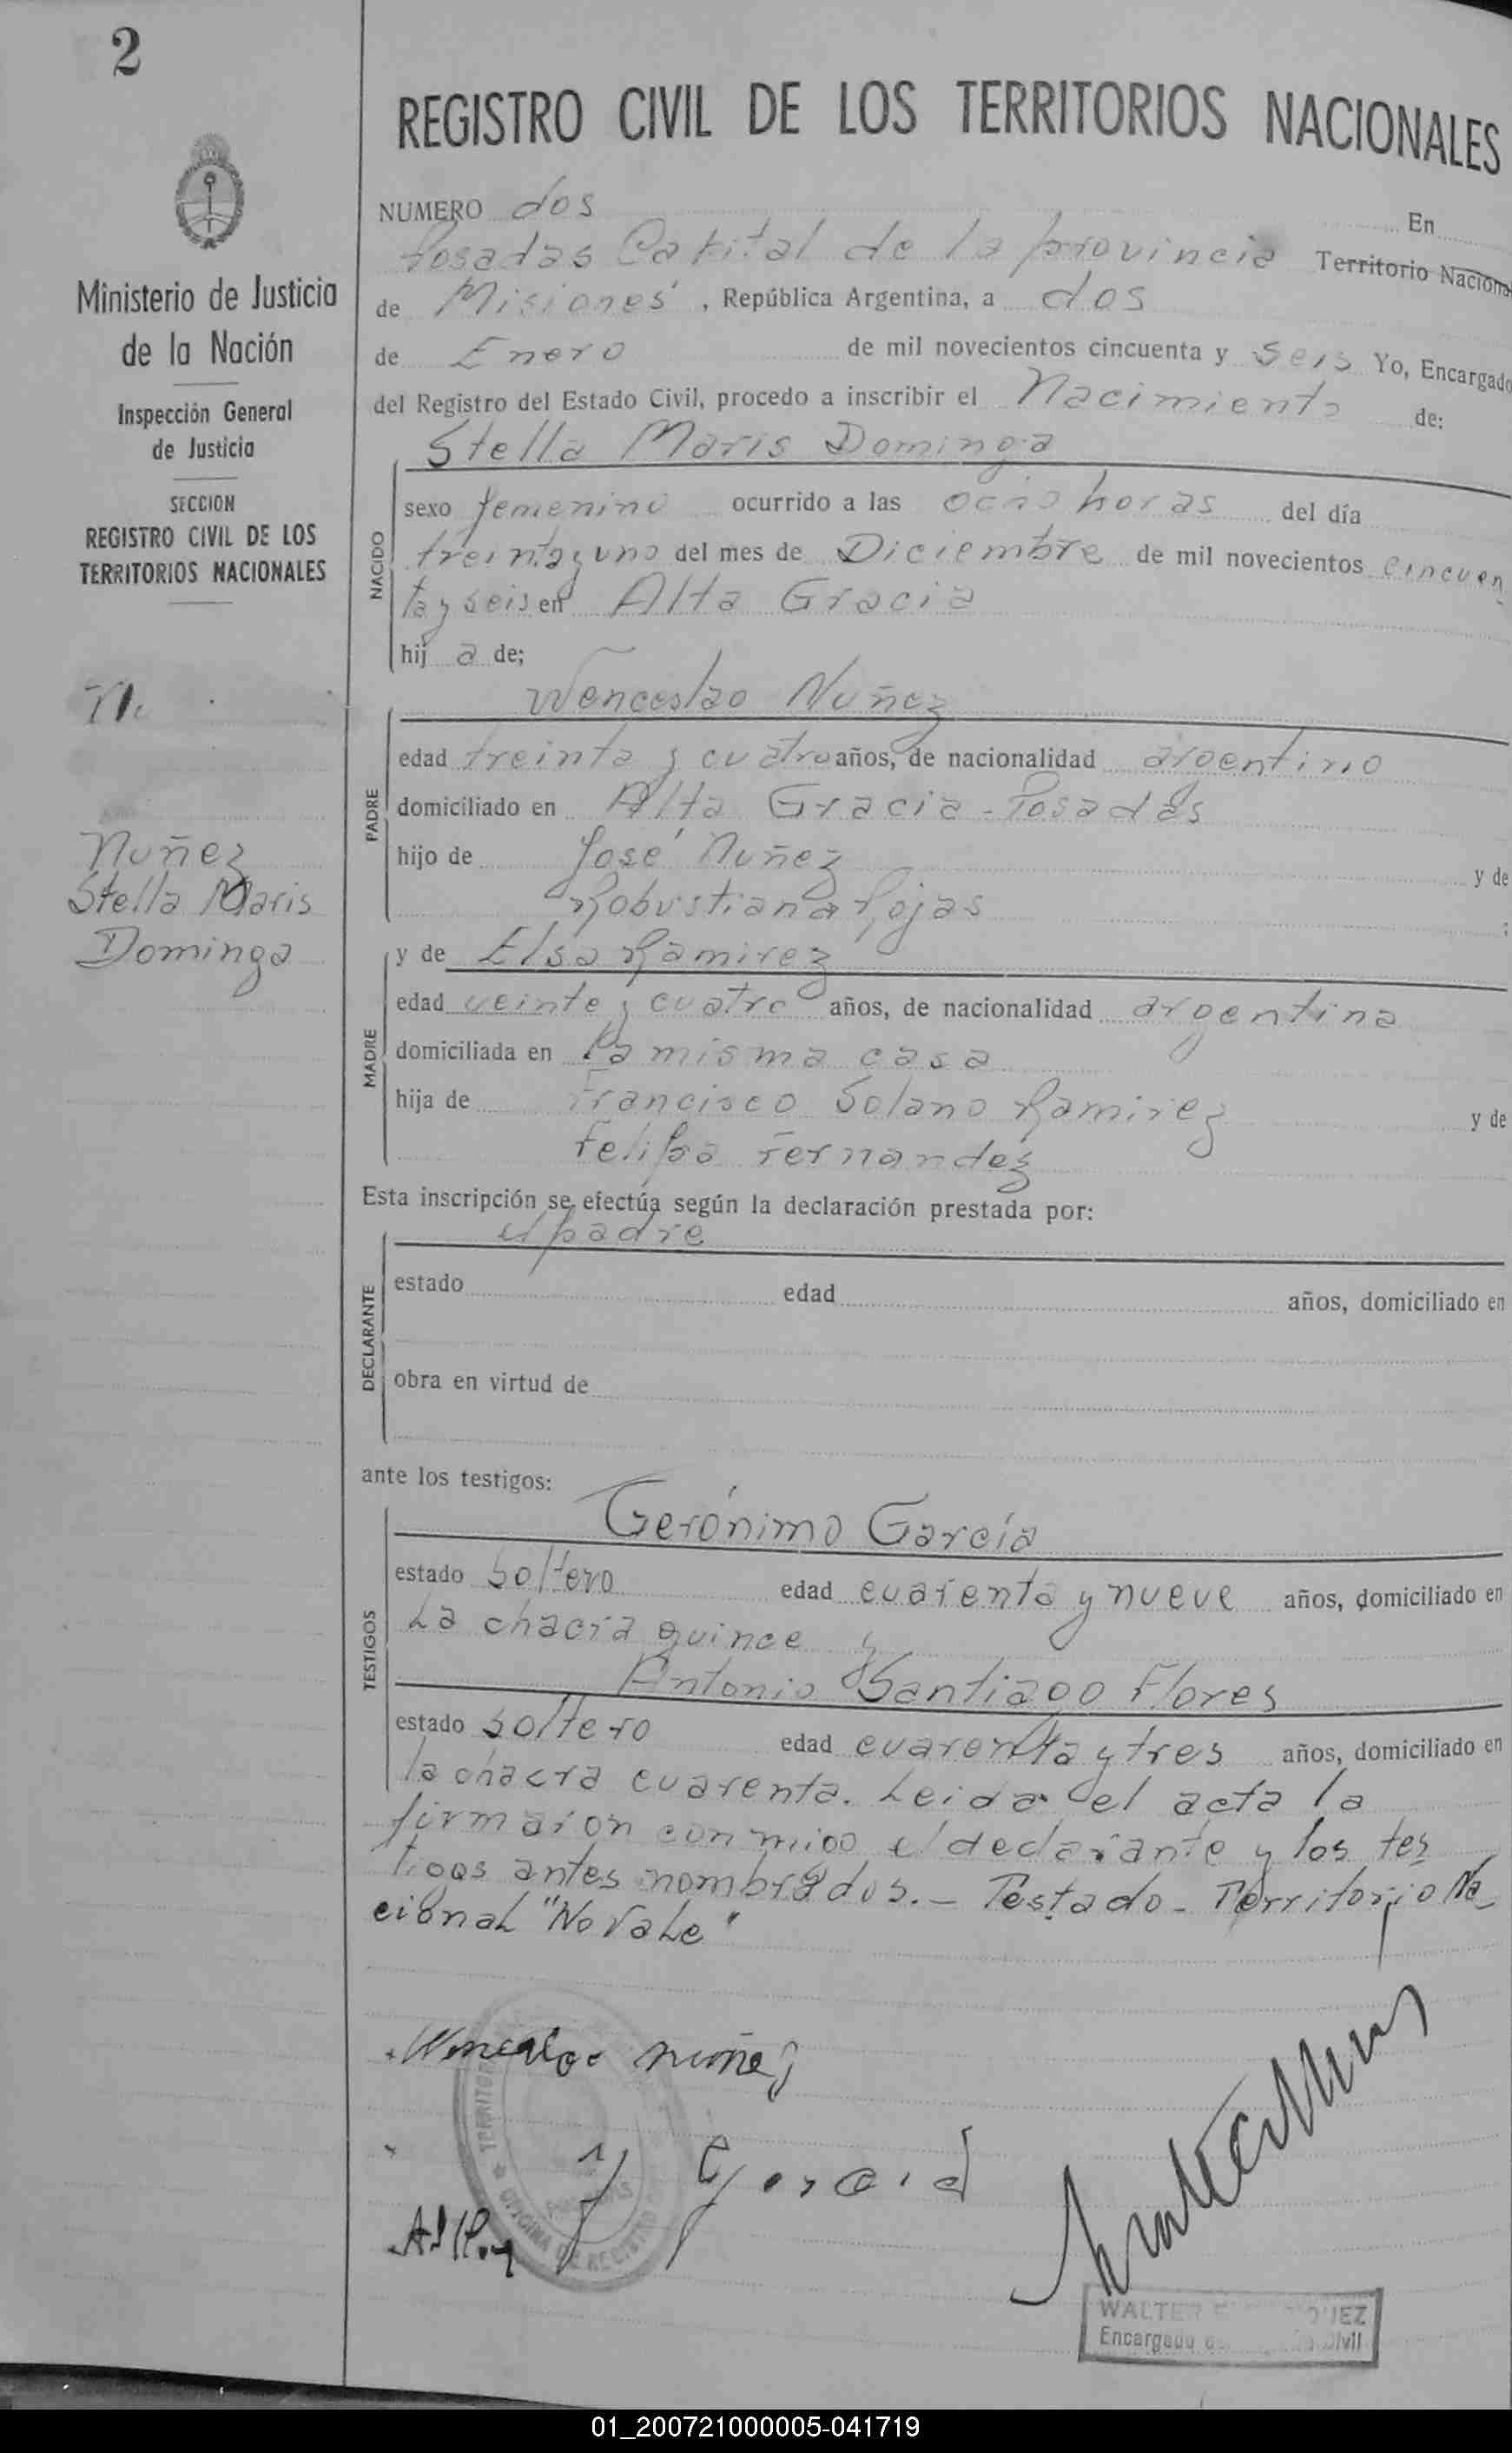 2
REGISTRO CIVIL DE LOS TERRITORIOS NACIONALES
NUMERO dos En
Posadas Capital de la provincia Territorio Nacional
de Misiones, República Argentina, a dos
de Enero de mil novecientos cincuenta y seis Yo, Encargado
del Registro del Estado Civil, procedo a inscribir el Nacimiento de:
Ministerio de Justicia
de la Nación
Inspección General
de Justicia
SECCION
REGISTRO CIVIL DE LOS
TERRITORIOS NACIONALES
N.
Nuñez
Stella Maris
Dominga
NACIDO
Stella Maris Dominga
sexo femenino ocurrido a las ocho horas del día
treinta y uno del mes de Diciembre de mil novecientos cincuen
ta y seis en Alta Gracia
hij a de;
PADRE
Wenceslao Nuñez
edad treinta y cuatro años, de nacionalidad argentino
domiciliado en Alta Gracia - Posadas
hijo de José Nuñez y de
Robustiana Rojas ;
MADRE
y de Elsa Ramirez
edad veinte y cuatro años, de nacionalidad argentina
domiciliada en la misma casa
hija de Francisco Solano Ramirez y de
Felipa Fernandez
Esta inscripción se efectúa según la declaración prestada por:
DECLARANTE
el padre
estado edad años, domiciliado en
obra en virtud de
ante los testigos:
TESTIGOS
Gerónimo García
estado soltero edad cuarenta y nueve años, domiciliado en
La chacra quince y
Antonio Santiago Flores
estado soltero edad cuarenta y tres años, domiciliado en
la chacra cuarenta. Leida el acta la
firmaron conmigo el declarante y los tes
tigos antes nombrados.- Testado - Territorio Na
cional "No Vale"
Wenceslao nuñez
J Garcia
OFICINA DE REGISTRO
WALTER
Encargado Civil
01_200721000005-041719